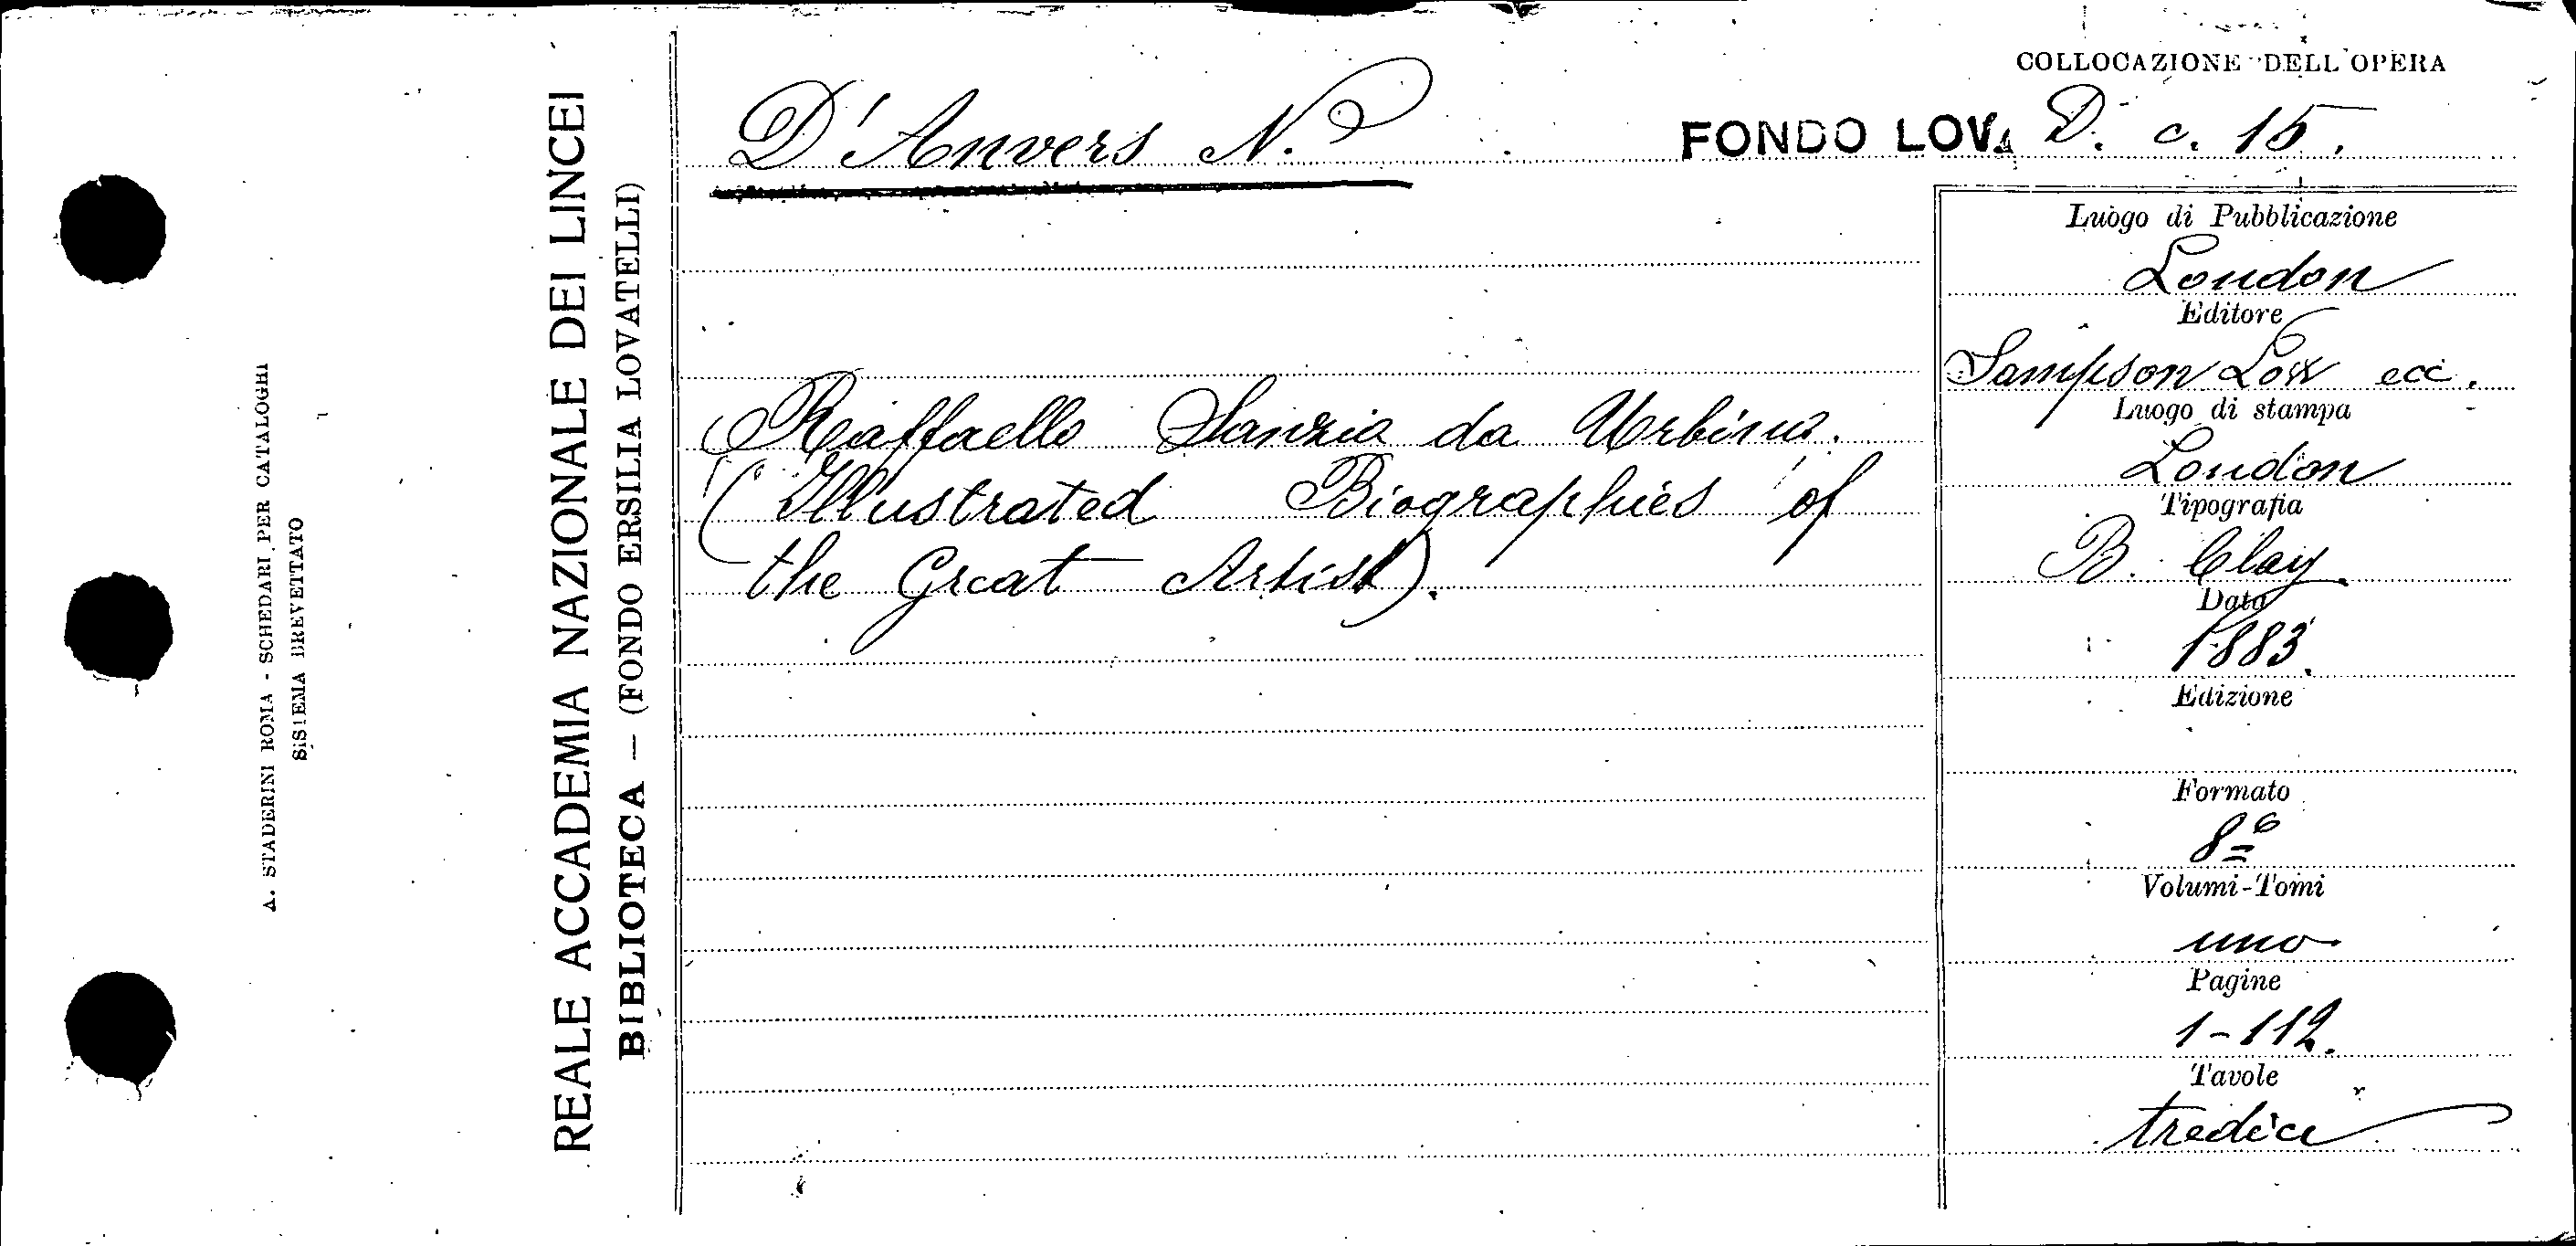 COLLOCAZIONE DELL'OPERA
D'Anvers N.
FONDO LOV. D. c. 15.
Raffaello Sanzio da Urbino.
(Illustrated Biographies of
the Great Artist).
Luogo di Pubblicazione
London
Editore
Sampson Low ecc.
Luogo di stampa
London
Tipografia
B. Clay
Data
1883.
Edizione
Formato
8º
Volumi-Tomi
uno
Pagine
1-112.
Tavole
tredici
REALE ACCADEMIA NAZIONALE DEI LINCEI
BIBLIOTECA — (FONDO ERSILIA LOVATELLI)
A. STADERINI ROMA - SCHEDARI PER CATALOGHI
SISTEMA BREVETTATO